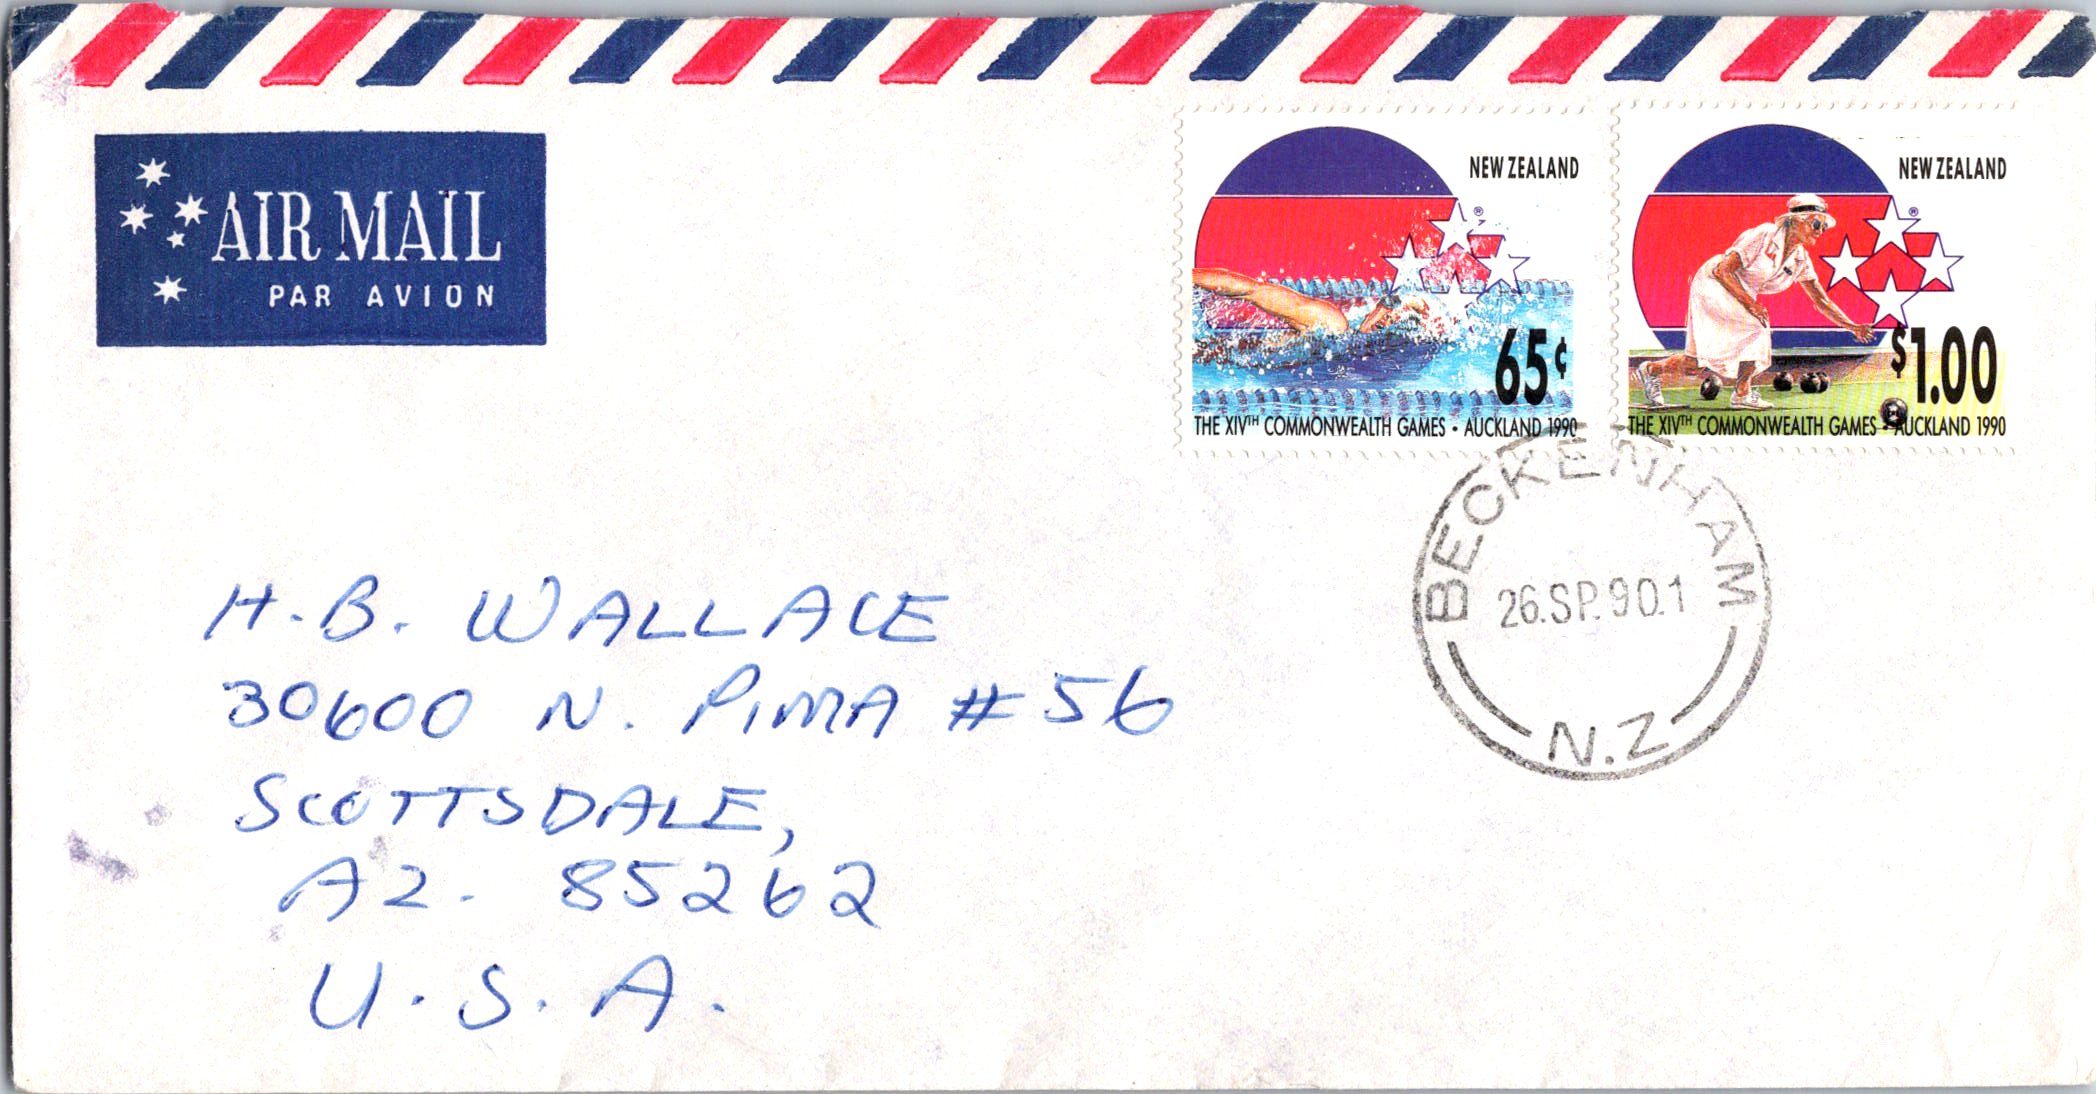 AIR MAIL
PAR AVION
NEW ZEALAND
®
65¢
THE XIVTH COMMONWEALTH GAMES • AUCKLAND 1990
NEW ZEALAND
®
$1.00
THE XIVTH COMMONWEALTH GAMES • AUCKLAND 1990
BECKENHAM
26.SP.90.1
N.Z
H.B. WALLACE
30600 N. PIMA #56
SCOTTSDALE,
AZ. 85262
U.S.A.